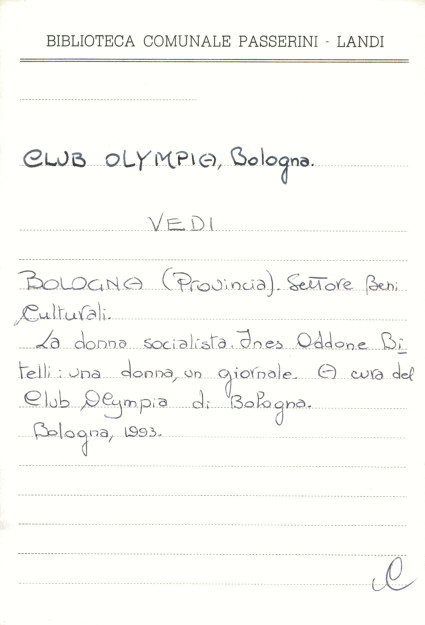 BIBLIOTECA COMUNALE PASSERINI - LANDI
CLUB OLYMPIA, Bologna.
VEDI
BOLOGNA (Provincia). Settore Beni
Culturali.
La donna socialista. Ines Oddone Bi
telli : una donna, un giornale. A cura del
Club Olympia di Bologna.
Bologna, 1993.
C